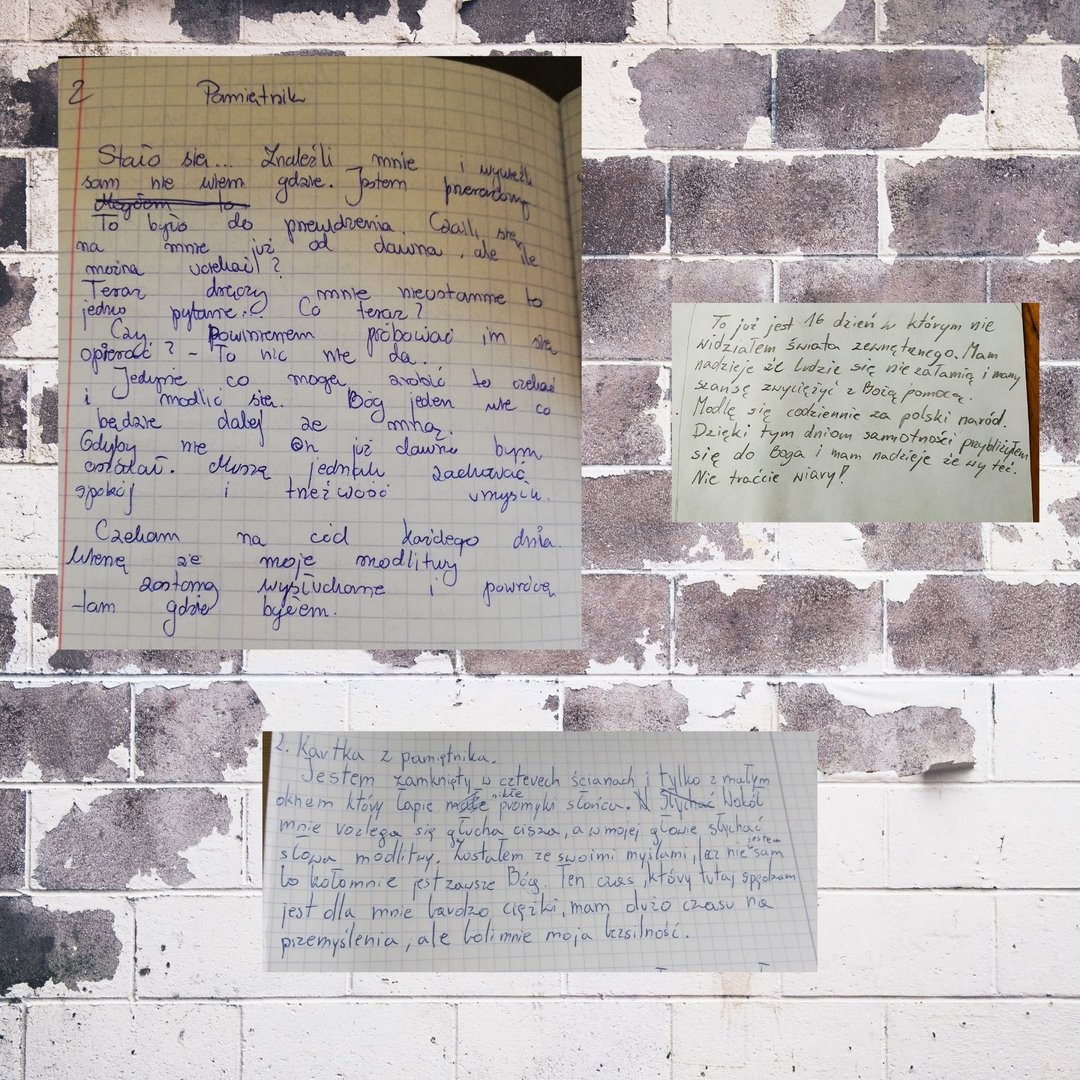 2 Pamiętnik
Stało się... Znaleźli mnie i wywieźli
sam nie wiem gdzie. Jestem przerażony
To było do przewidzenia. Czaili się
na mnie już od dawna, ale ile
można uciekać?
Teraz dręczy mnie nieustannie to
jedno pytanie: Co teraz?
Czy powinienem próbować im się
opierać? - To nic nie da.
Jedynie co mogę zrobić to czekać
i modlić się. Bóg jeden wie co
będzie dalej ze mną.
Gdyby nie On już dawno bym
Muszę jednak zachować
spokój i trzeźwość umysłu.
Czekam na cód każdego dnia.
Wierzę że moje modlitwy
zostaną wysłuchane i powrócę
tam gdzie byłem.
To już jest 16 dzień w którym nie
widziałem świata zewnętrznego. Mam
nadzieje że ludzie się nie załamią i mamy
szansę zwyciężyć z Bożą pomocą.
Modlę się codziennie za polski naród.
Dzięki tym dniom samotności przybliżyłem
się do Boga i mam nadzieje że wy też.
Nie traćcie wiary!
2. Kartka z pamiętnika.
Jestem zamknięty w czterech ścianach i tylko z małym
oknem który łapie nikłe promyki słońca. Wokół
mnie rozlega się głucha cisza, a w mojej głowie słychać
słowa modlitwy. Zostałem ze swoimi myślami, lecz nie jestem sam
bo koło mnie jest zawsze Bóg. Ten czas, który tutaj spędzam
jest dla mnie bardzo ciężki, mam dużo czasu na
przemyślenia, ale boli mnie moja bezsilność.